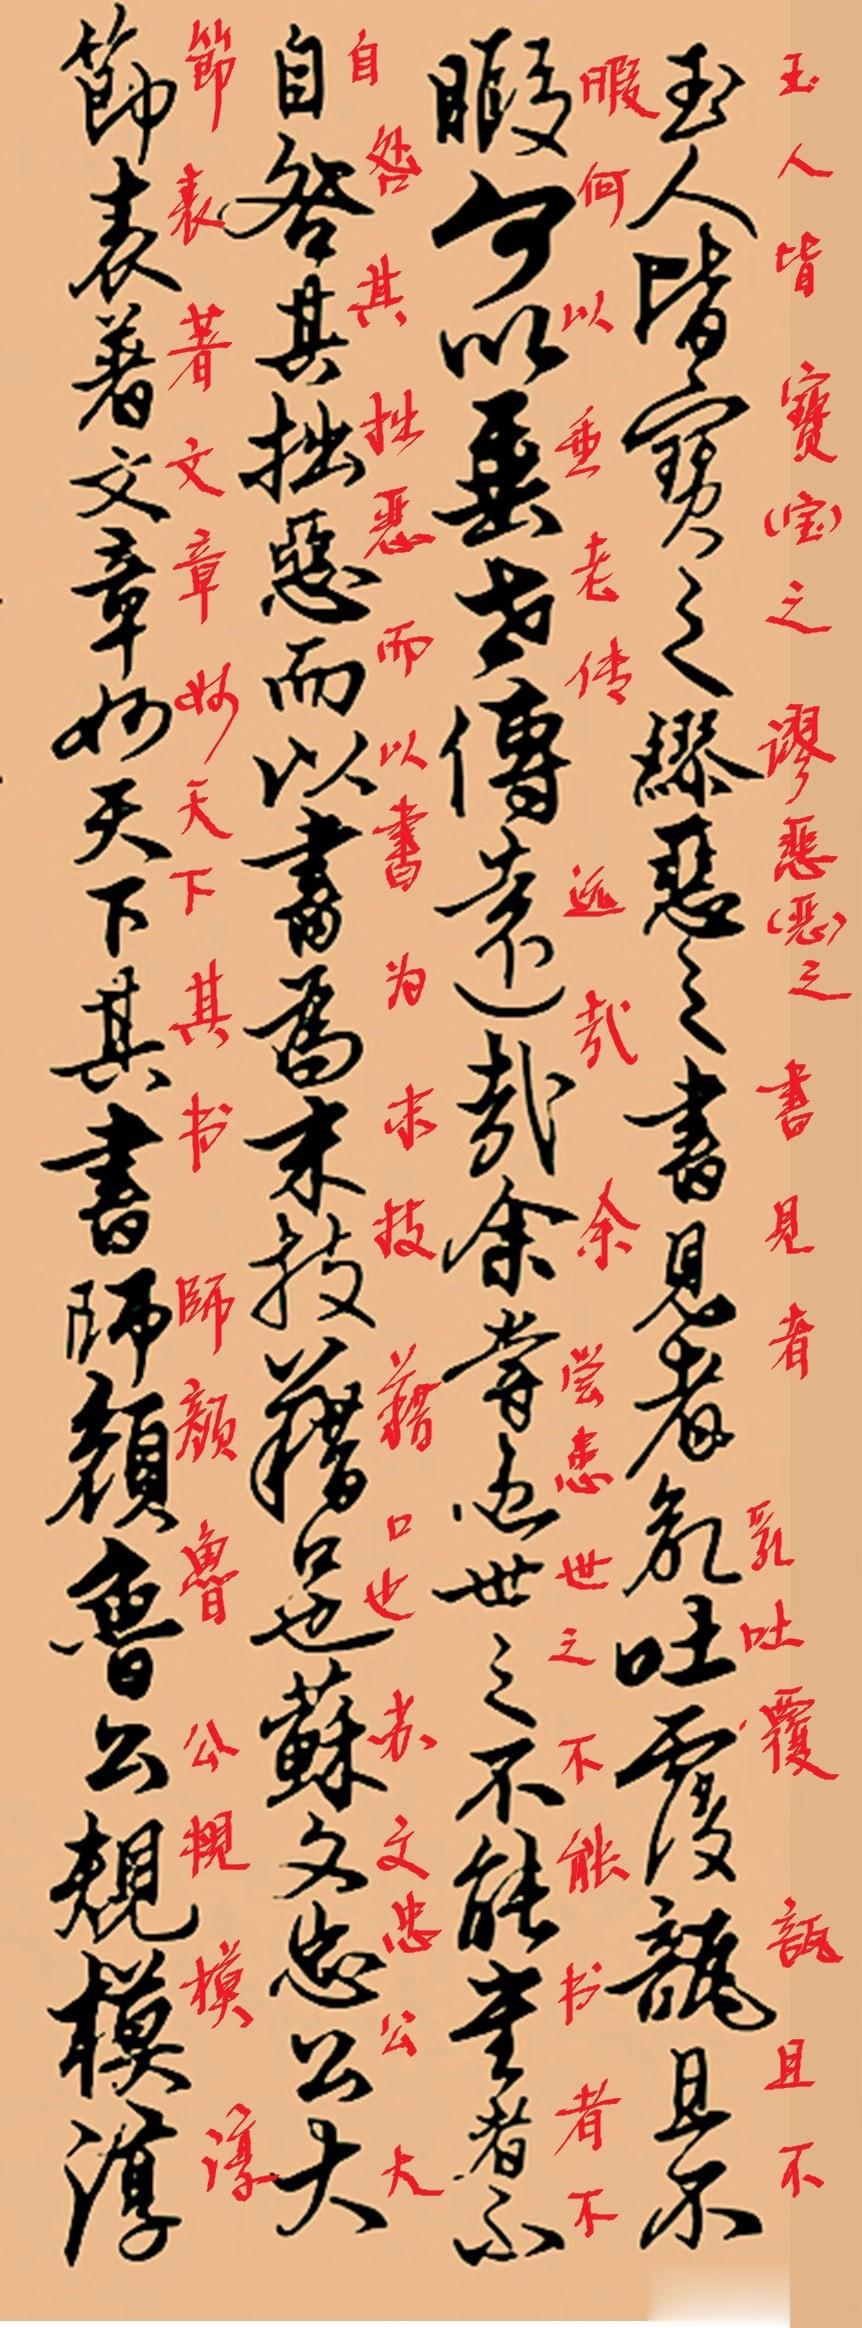 玉人皆寶(宝)之谬惡(恶)之書見者乱吐覆瓿且不
玉人皆寶之繆惡之書見者乱吐覆瓿且不
暇何以垂老传远哉余尝患世之不能书者不
暇何以垂世傳遠哉余嘗患世之不能書者不
自咎其拙恶而以書为末技藉口也苏文忠公大
自咎其拙惡而以書為末技藉口也蘇文忠公大
節表著文章妙天下其书師颜魯公規模淳
節表著文章妙天下其書師顏魯公規模淳